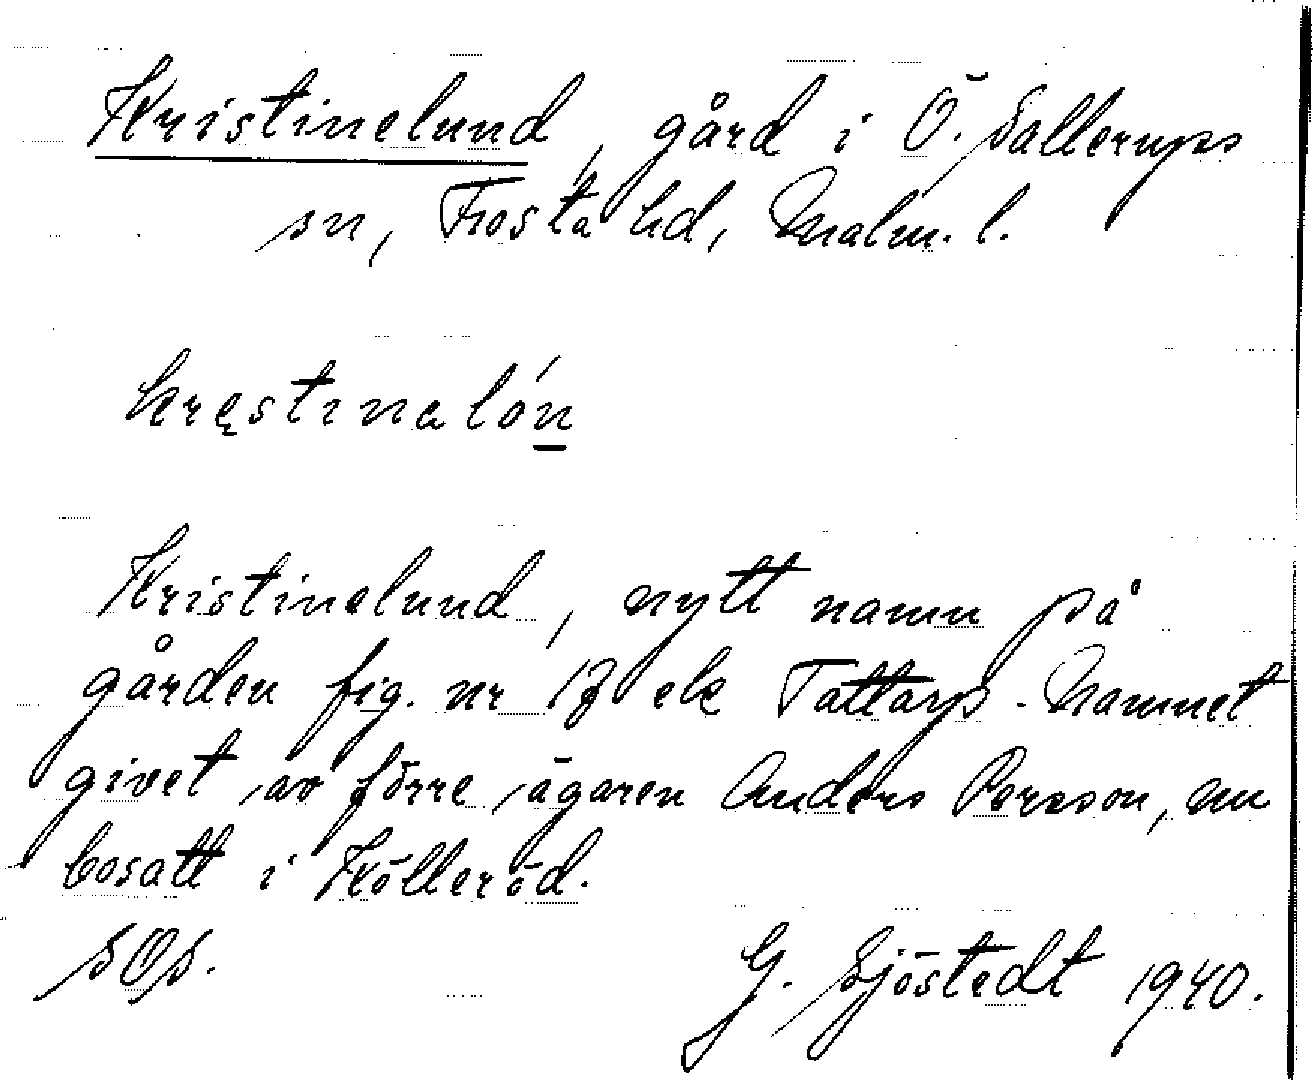 Kristinelund, gård i Ö. Sallerups
sn, Frosta hd, Malm. l.
kręstinalón
Kristinelund, nytt namn på
gården fig. nr 17 ek Tattarp. Namnet
givet av förre ägaren Anders Persson, nu
bosatt i Kölleröd.
SOs.
G. Sjöstedt 1940.